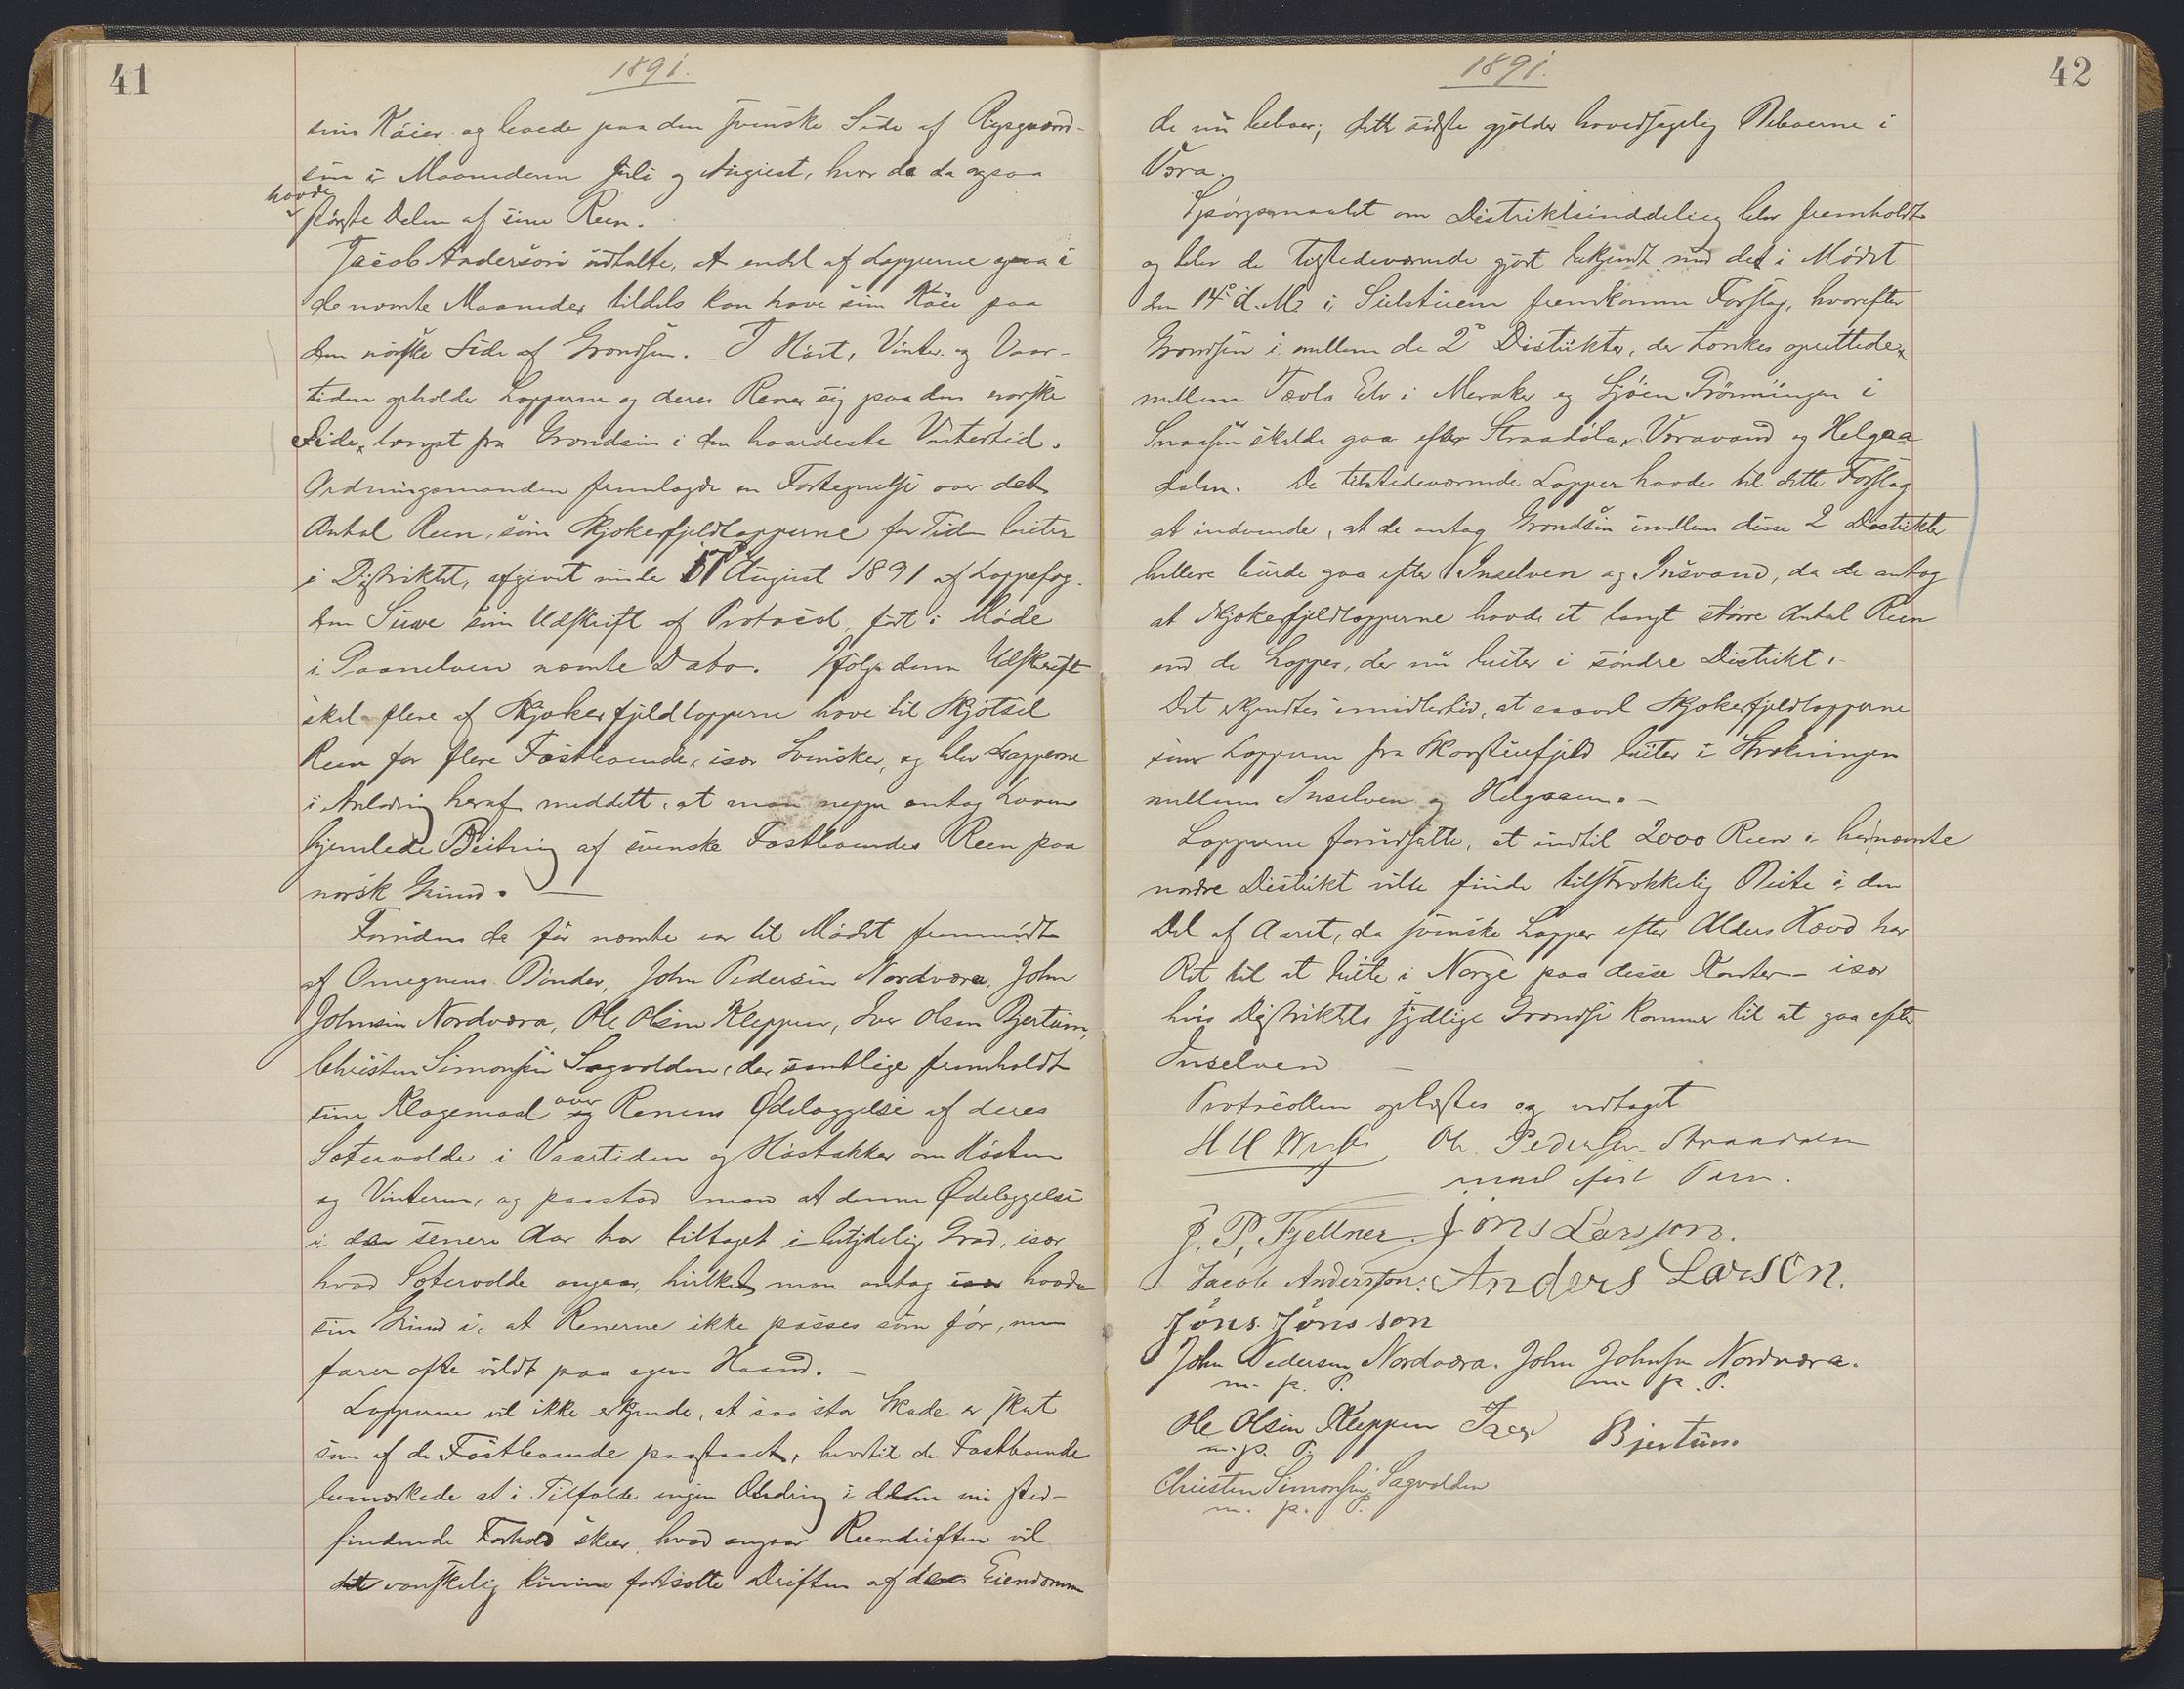 41
1891.
sine Kåier og levede paa den svenske Side af Rigsgrænd-
sen i Maanederne Juli og August, hvor de da ogsaa
havde
største Delen af sine Reen.
Jacob Anderson udtalte, at endel af Lapperne ogsaa i
de nævnte Maaneder tildels kan have sine Kåier paa
den norske Side af Grændsen. I Høst, Vinter og Vaar-
tiden opholder Lapperne og deres Rener sig paa den norske
Side, længst fra Grændsen i den haardeste Vintertid.
Ordningsmanden fremlagde en Fortegnelse over det
Antal Reen, som Skjækerfjeldlapperne for Tiden beiter
i Distriktet, afgivet under 17 August 1891 af Lappefog-
den Suwe som Udskrift af Protocol, ført i Møde
i nævnte Dato. Ifølge denne Udskrift
skal flere af Skjækerfjeldlapperne have til Skjøtsel
Reen for flere Fastboende, især Svensker, og blev Lapperne
i Anledning heraf meddelt, at man neppe antog Loven
hjemlede Beitning af svenske Fastboendes Reen paa
norsk Grund. —
Foruden de før nævnte var til Mødet fremmødt
af Omegnens Bønder, John Pedersen Nordværa, John
Johnsen Nordværa, Ole Olsen Kleppen, Iver Olsen Bjertum,
Christen Simonsen Sagvolden, der samtlige fremholdt
sine Klagemaal over Renens Ødelæggelse af deres
Sætervolde i Vaartiden og Høstakker om Høsten
og Vinteren, og paastod man at denne Ødelæggelse
i de senere Aar har tiltaget i betydelig Grad, især
hvad Sætervolde angaar, hvilket man antog havde
sin Grund i, at Renerne ikke passes som før, men
farer ofte vildt paa egen Haand. —
Lapperne vil ikke erkjende, at saa stor Skade er skeet
som af de Fastboende paastaaet, hvortil de Fastboende
bemærkede at i Tilfælde ingen Ændring i det nu sted-
findende Forhold skeer, hvad angaar Reendriften vil
det vanskelig kunne fortsætte Driften af deres Eiendomme
42
1891.
de nu beboer; dette sidste gjælder hovedsagelig Beboerne i
Væra.
Spørgsmaalet om Distriktsinddeling blev fremholdt
og blev de tilstedeværende gjort bekjendt med det i Mødet
den 14de d. M. i Sulstuen fremkomne Forslag, hvorefter
Grændsen i mellem de 2de Distrikter, der tænkes oprettede
mellem Tævla Elv i Meraker og Sjøen Grönningen i
Snaasen skulde gaa efter Straadøla, Væravand og Helgaa
dalen. De tilstedeværende Lapper havde til dette Forslag
at indvende, at de antog Grændsen imellem disse 2 Distrikter
hellere burde gaa efter Inselven og Insvand, da de antog
at Skjækerfjeldlapperne havde et langt større Antal Reen
end de Lapper, der nu beiter i søndre Distrikt. -
Det erkjendtes imidlertid, at saavel Skjækerfjeldlapperne
som Lapperne fra Skarstuefjeld beiter i Strækningen
mellem Inselven og Helgaaen. —
Lapperne forudsatte, at indtil 2000 Reen i hernævnte
nordre Distrikt vilde finde tilstrækkelig Beite i den
Del af Aaret, da svenske Lapper efter Alders Hævd har
Ret til at beite i Norge paa disse Kanter — især
hvis Distriktets sydlige Grændse kommer til at gaa efter
Inselven —
Protocollen oplæstes og vedtaget
Ole Pedersen Straadalen
med ført Pen.
J. P. Fjellner. Jöns Larsson.
Jacob Andersson. Anders Larson.
Jöns Jönsson
John Pedersen Nordværa. John Johnsen Nordværa.
m. p. P. m. p. P.
Ole Olsen Kleppen Iver Bjertum
m. p. P.
Christen Simonsen Sagvolden
m. p. P.